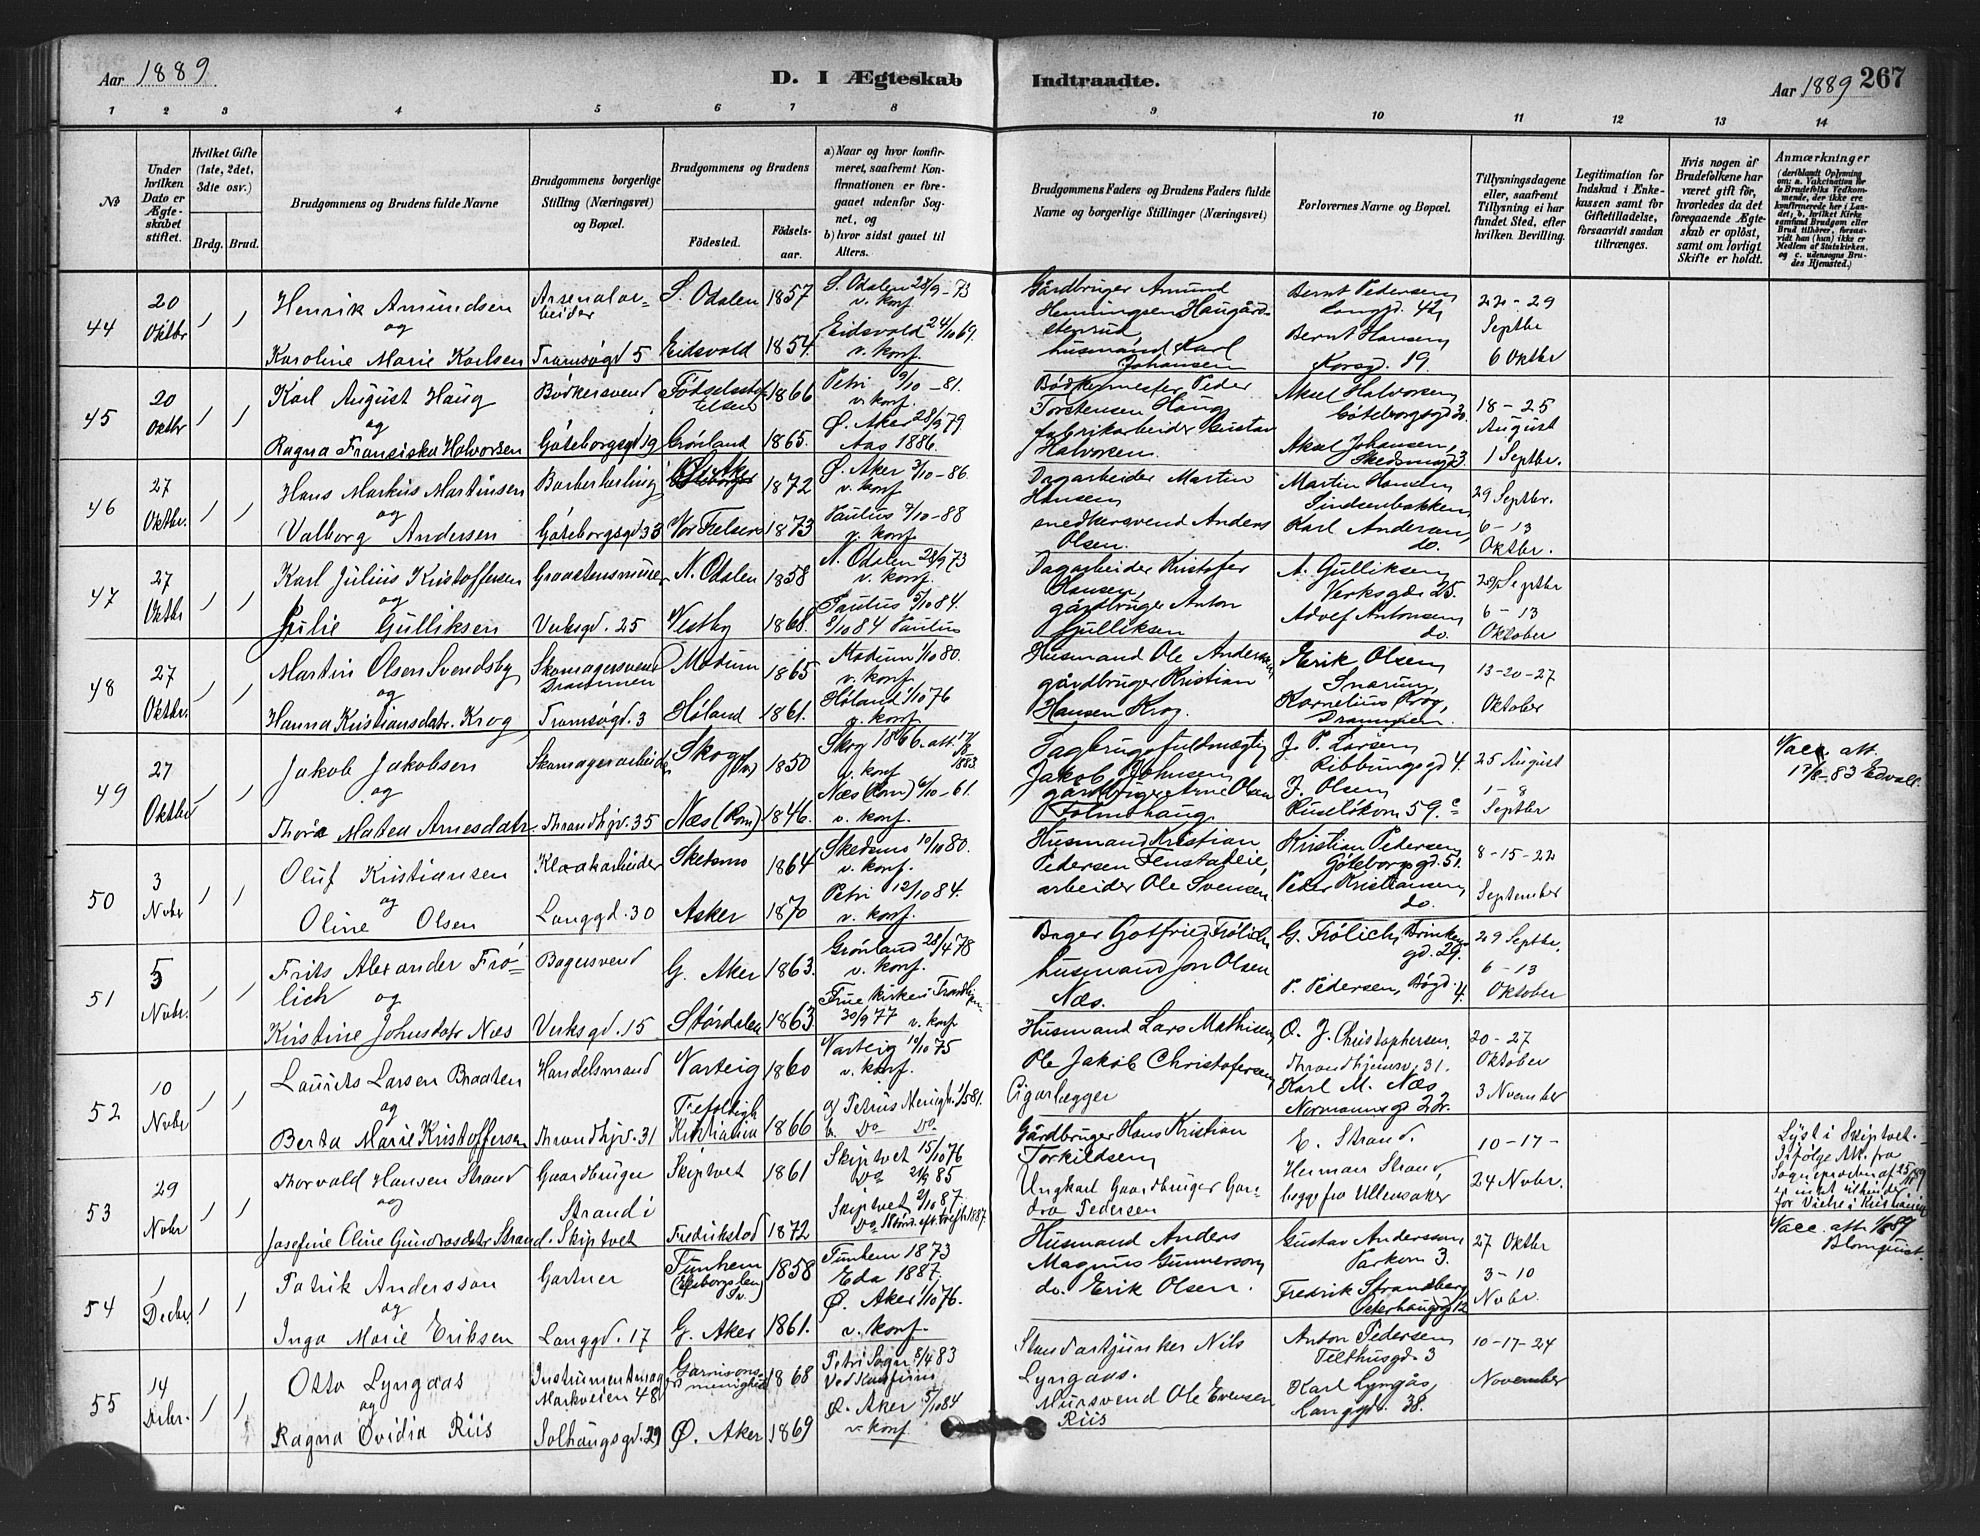 Aar 1889
D. I Ægteskab
Indtraadte.
Aar 1889 267
1 2 3 4 5 6 7 8 9 10 11 12 13 14
№
Under hvilken Dato er Ægteskabet stiftet.
Hvilket Gifte (1ste, 2det, 3die osv.)
Brdg. Brud.
Brudgommens og Brudens fulde Navne
Brudgommens borgerlige Stilling (Næringsvei) og Bopæl.
Brudgommens og Brudens
Fødested.
Fødselsaar.
a) Naar og hvor konfirmeret, saafremt Konfirmationen er foregaaet udenfor Sognet, og
b) hvor sidst gaaet til Alters.
Brudgommens Faders og Brudens Faders fulde Navne og borgerlige Stillinger (Næringsvei)
Forlovernes Navne og Bopæl.
Tillysningsdagene eller, saafremt Tillysning ei har fundet Sted, efter hvilken Bevilling.
Legitimation for Indskud i Enkekassen samt for Giftetilladelse, forsaavidt saadan tiltrænges.
Hvis nogen af Brudefolkene har været gift før, hvorledes da det foregaaende Ægteskab er opløst, samt om lovligt Skifte er holdt.
Anmærkninger
44 20 Oktbr 1 1
Henrik Amundsen
og
Karoline Marie Karlsen
Arsenalarbeider
Tromsøgd 5
S. Odalen 1857
Eidsvold 1854
S. Odalen 28/9-73
v. konf
Eidsvold 24/10 69.
v. konf.
Gårdbruger Amund
Henningsen Haugårdstenrud
husmand Karl
Johansen
Bernt Pedersen
Langgd. 42,
Bernt Hansen,
Korsgd. 19.
22-29
Septbr
6 Oktbr
45 20 Oktbr 1 1
Karl August Haug
og
Ragna Franciska Halvorsen
Bødkersvend
Göteborgsgd 19
Fødselsstif-
telsen 1866
Grønland 1865.
Petri 9/10-81.
v. konf.
Ø. Aker 28/9 79
Aas 1886.
Bødkermester Peder
Torstensen Haug
fabrikarbeider Gustav
Halvorsen.
Aksel Halvorsen,
Göteborgsgd 30.
Aksel Johansen,
Skedsmogd 3.
18-25
August
1 Septbr.
46 27 Oktbr. 1 1
Hans Markus Martinsen
og
Valborg Andersen
Barberlærling
Göteborgsgd 33
Ø. Aker 1872
Vor Frelsers 1873
Ø. Aker 3/10-86.
v. konf
Paulus 7/10-88
v. konf
Dagarbeider Martin
Hansen,
snedkersvend Anders
Olsen.
Martin Hansen
Lindeenbakken,
Karl Andersen,
do.
29 Septbr.
6-13
Oktbr.
47 27 Oktbr 1 1
Karl Julius Kristoffersen
og
Julie Gulliksen
Graastensmurer
Verksgd. 25
N. Odalen 1858
Vestby 1868.
N. Odalen 28/9 73
v. konf.
Paulus 5/10 84.
5/10 84 Paulus
Dagarbeider Kristofer
Hansen,
gårdbruger Anton
Gulliksen
A. Gulliksen,
Verksgd. 25.
Adolf Antonsen,
do.
29/ Septbr
6-13
Oktober
48 27 Oktbr. 1 1
Martin Olsen Svendsby
og
Hanna Kristiansdatr. Krog
Skomagersvend
Drammen
Tromsøgd. 3
Modum 1865
Høland 1861.
Modum 1/10 80.
v. konf.
Høland 1/10 76
v. konf
Husmand Ole Andersen,
gårdbruger Kristian
Hansen Krog.
Erik Olsen,
Snarum,
Kornelius Krog,
Drammen.
13-20-27
Oktober
49 27 Oktober 1 1
Jakob Jakobsen
og
Thora Matea Arnesdatr.
Skomagerarbeider
Throndhjv. 35
Skog 1850
Næs (Rom) 1846.
Skog 1866 att. 17/8 1883.
v. konf
Næs (Rom) 6/10-61.
v. konf.
Tagbrugsfuldmægtig
Jakob Johnsen,
gårdbruger Arne Olsen
Folmohaug
J. P. Larsen,
Ribbungsgd 4.
J. Olsen,
Ruseløkvn 59. c
25 August
1-8
Septbr
Vacc. att.
17/8-83 Edvall.
50 3 Novbr 1 1
Oluf Kristiansen
og
Oline Olsen
Kloakarbeider
Langgd. 30
Skedsmo 1864
Asker 1870
Skedsmo 10/10 80.
v. konf.
Petri 12/10 84.
v. konf.
Husmand Kristian
Pedersen Fenstadeie,
arbeider Ole Svensen
Kristian Pedersen,
Göteborgsgd. 51.
Peder Kristiansen,
do.
8-15-22
September
51 5 Novbr. 1 1
Frits Alexander Frö-
lich og
Kristine Johnsdatr Næs
Bagersvend
Verksgd. 15
G. Aker 1863.
Størdalen 1863
Grønland 28/4 78
v. konf.
Frue Kirke i Trondhjem
30/9 77 v. konf
Bager Gotfried Frölich
husmand Jon Olsen
Næs.
G. Frölich, Brinkengd. 29.
P. Pedersen, Høgd. 4.
29 Septbr.
6-13
Oktober
52 10 Novbr 1 1
Laurits Larsen Braaten
og
Berta Marie Kristoffersen
Handelsmand
Throndhjv. 31
Varteig 1860
Trefoldigh.
Kristiania 1866
Varteig 10/10 75
v. konf.
a/ Petrus Menigh. 1/5 81.
b. Do Do
Husmand Lars Mathisen,
Ole Jakob Christofersen,
Cigarlægger
O. J. Christophersen,
Throndhjemsv. 31.
Karl M. Næs
Normannsgd 22.
20-27
Oktober
3 November
53 29 Novbr 1 1
Thorvald Hansen Strand
og
Josefine Oline Gundrosdatr Strand.
Gaardbruger
Strand i
Skiptvet
Skiptvet 1861
Fredrikstad 1872
Skiptvet 15/10 76
Do 21/9 85
Skiptvet 2/10 87
Gårdbruger Hans Kristian
Torkildsen,
Ungkarl Gaardbruger Gun-
dro Pedersen
E. Strand.
Herman Strand,
begge fra Ullensaker
10-17-
24 Novbr.
Lyst i Skiptvet.
Ifølge Att. fra
Sognepresten af 25/11 89
er intet til hinder
for Vielse i Kristiania
Vacc. att. 1/6 87
Blomquist.
54 1 Decbr. 1 1
Patrik Andersson
og
Inga Marie Eriksen
Gartner
Langgd. 17
Tunhem
(Elfsborgs len)
Sv. 1858
G. Aker 1861.
Tunhem 1873
Eda 1887.
Ø. Aker 1/10 76.
v. konf.
Husmand Anders
Magnus Gunnerson,
do. Erik Olsen.
Gustav Andersson,
Parkvn 3.
Fredrik Strandberg,
Peterhaugsgd 12
27 Oktbr
3-10
Novbr.
55 14 Decbr. 1 1
Otto Lyngaas
og
Ragna Ovidia Riis
Instrumentmag
Markveien 48
Solhaugsgd. 29
Garnisons-
menighed 1868
Ø. Aker 1869
Petri Sogn 8/4 83
Ved Konfirm
Ø. Aker 5/10 84
v. konf.
Standartjunker Nils
Lyngaas.
Mursvend Ole Evensen
Riis
Anton Pedersen,
Telthusgd. 3
Karl Lyngås,
Langgd. 38.
10-17-24
November